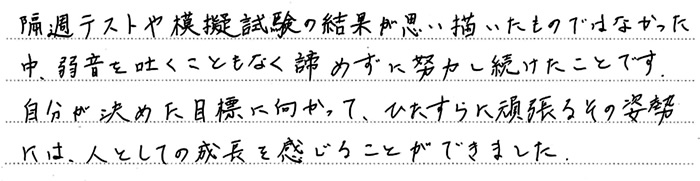 隔週テストや模擬試験の結果が思い描いたものではなかった
中、弱音を吐くこともなく諦めずに努力し続けたことです。
自分が決めた目標に向かって、ひたすらに頑張るその姿勢
には、人としての成長を感じることができました。